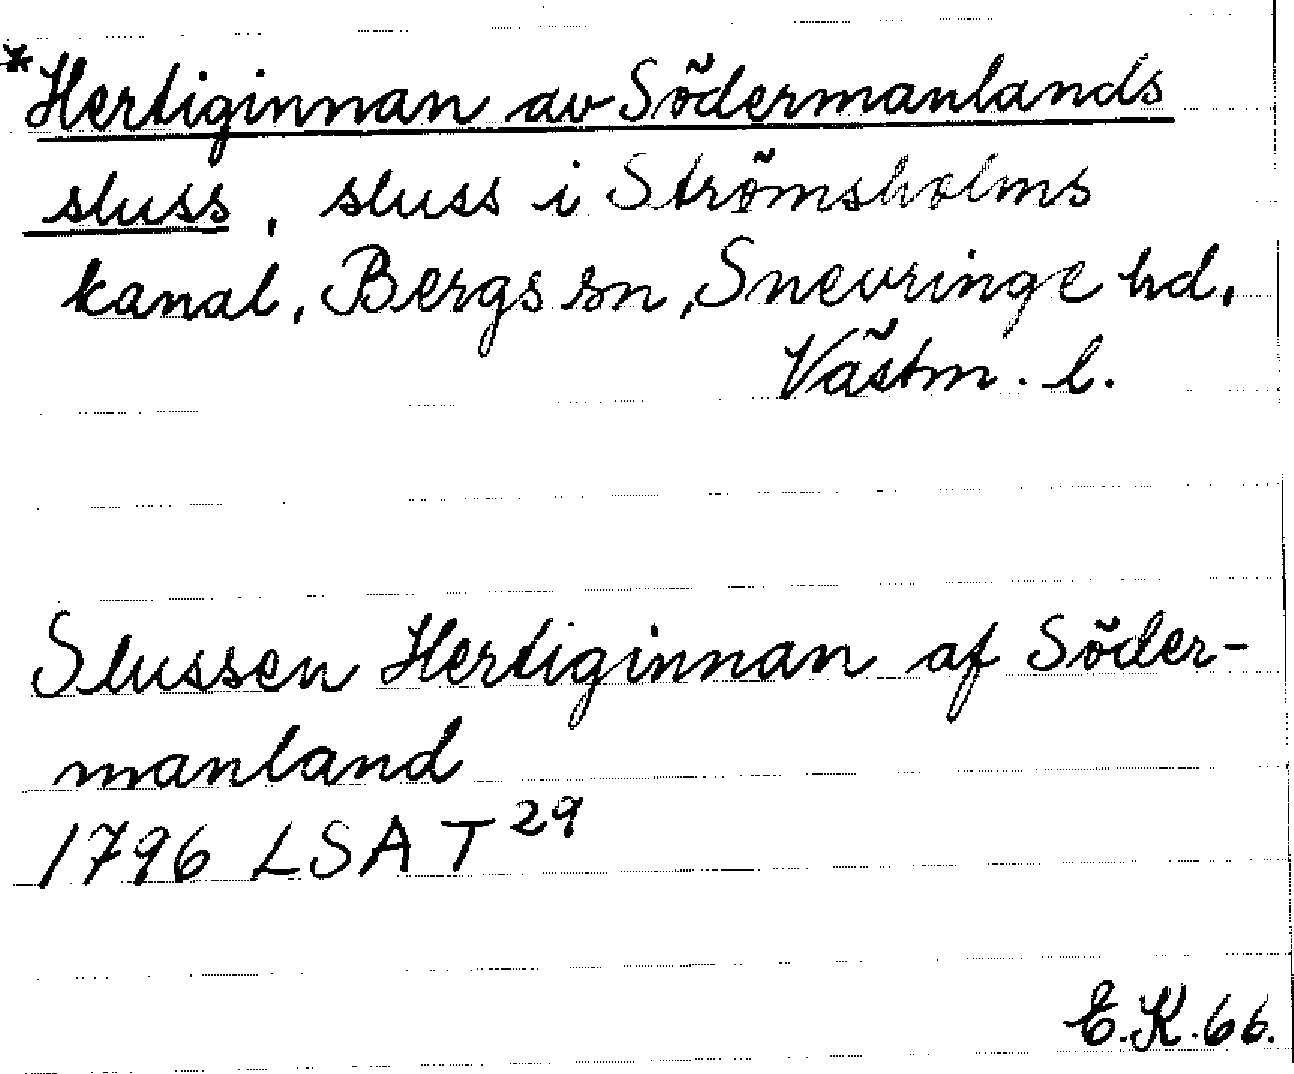 *Hertiginnan av Södermanlands
sluss, sluss i Strömsholms
kanal, Bergs sn, Snevringe hd,
Västm. l.
Slussen Hertiginnan af Söder-
manland
1796 LSA T 29
E.K. 66.